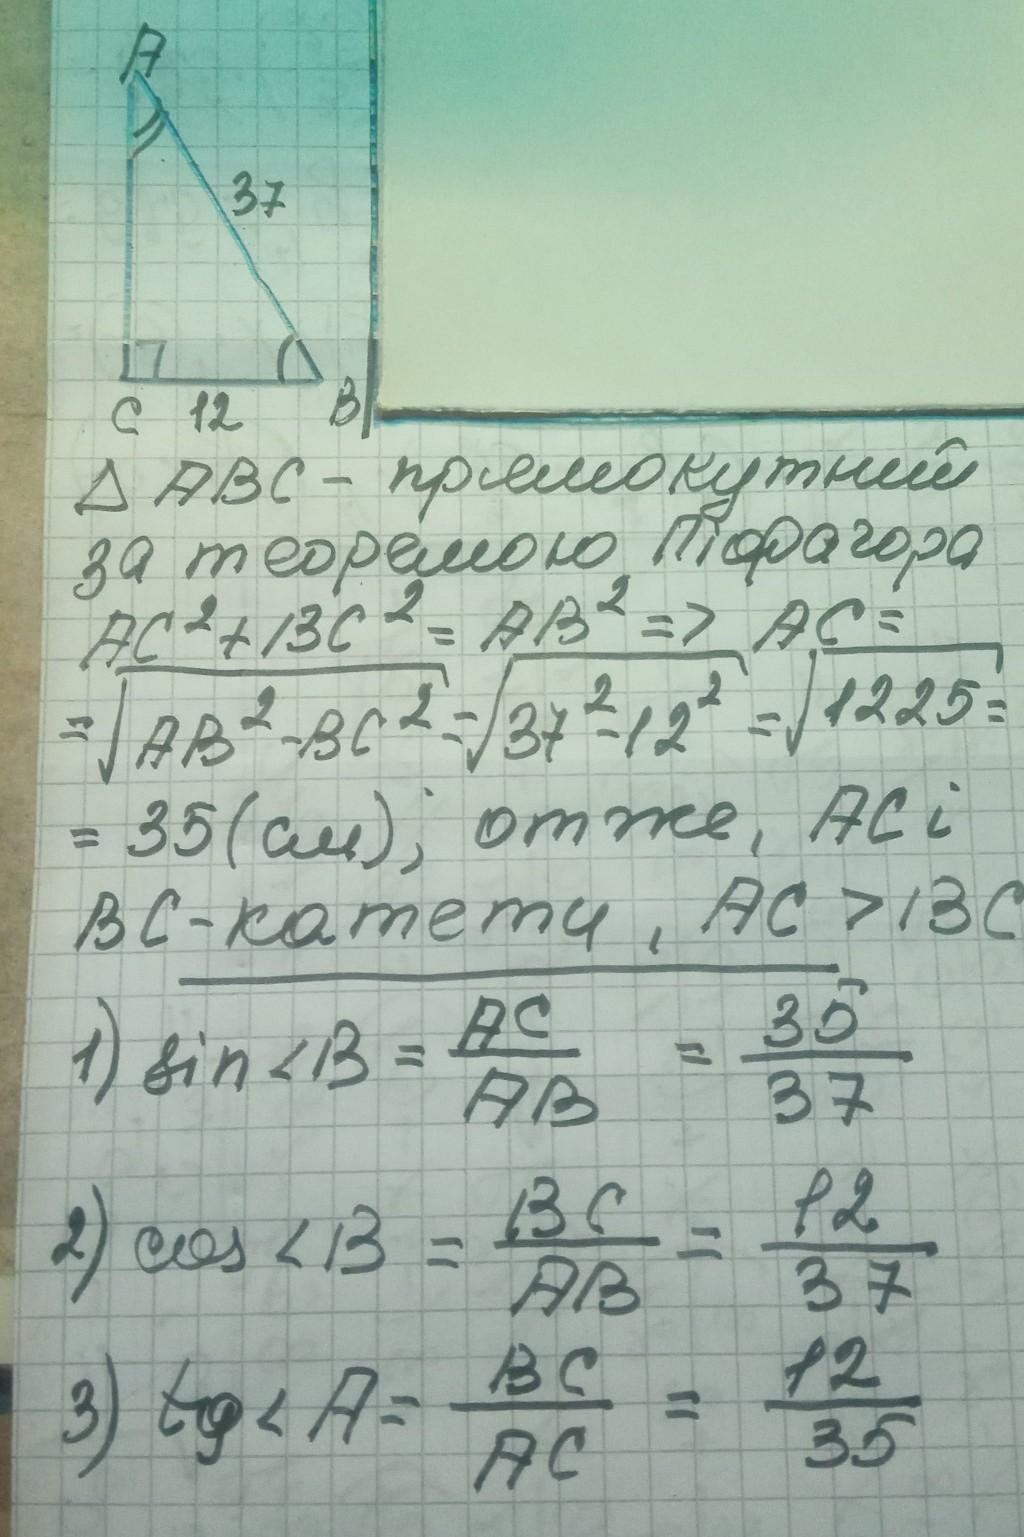 A
37
C 12 B
△ ABC - прямокутний
за теоремою Піфагора
AC² + BC² = AB² => AC =
= √AB² - BC² = √37² - 12² = √1225 =
= 35 (см); отже, AC і
BC - катети, AC > BC
1) sin < B = AC/AB = 35/37
2) cos < B = BC/AB = 12/37
3) tg < A = BC/AC = 12/35